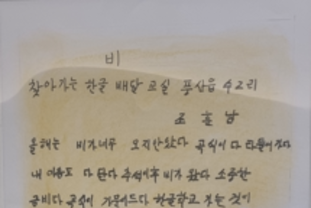 비
찾아가는 한글 배달 교실 풍산읍 수2리
올해는 비가 너무 오지 안았다 곡식이 다 타들어 갔다
내 마음도 다 탄다 추석이후 비가 왔다 소중한
금비다 곡식이 가물어든다 한글학교 가는 것이